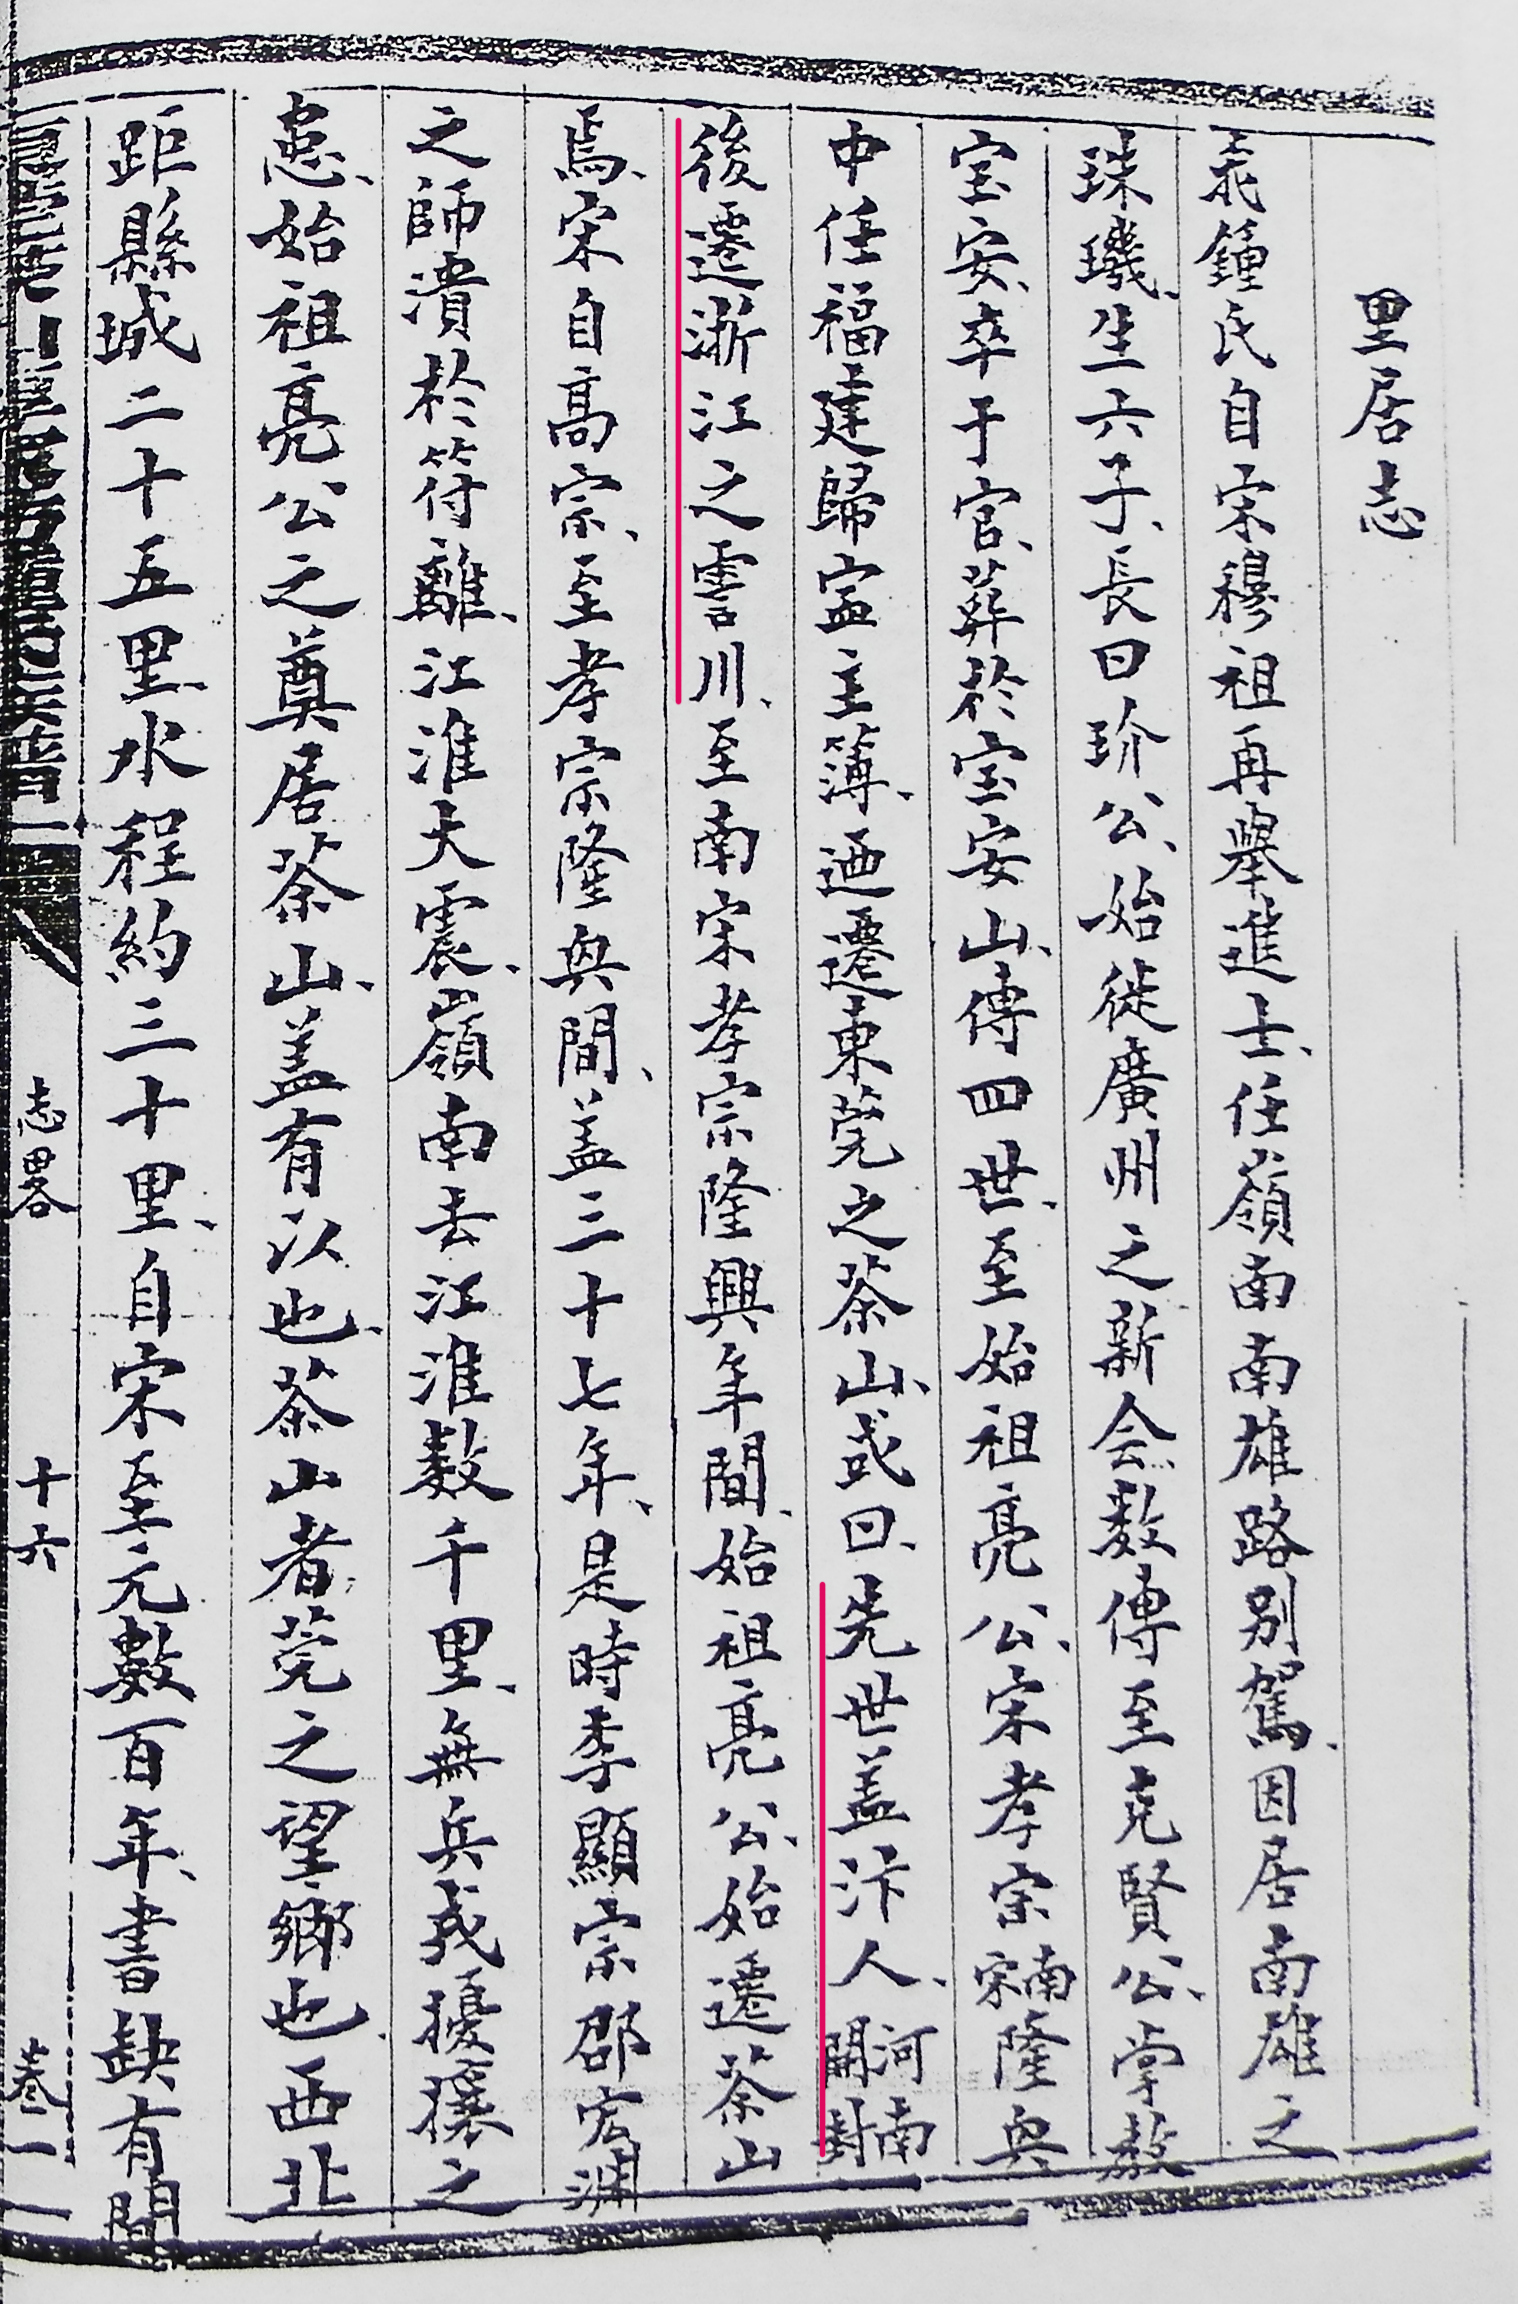 里居志
我鐘氏自宋穆祖再舉進士、任嶺南南雄路別駕、因居南雄之
珠璣、生六子、長曰玠公、始徙廣州之新会、数傳至克賢公、掌教
宝安、卒于官、葬於宝安山、傳四世、至始祖亮公、宋孝宗南宋隆兴
中任福建歸寍主簿、迺遷東莞之茶山、或曰、先世盖汴人、河南開封
後遷浙江之霅川、至南宋孝宗隆興年間、始祖亮公、始遷茶山
焉、宋自高宗、至孝宗隆兴間、盖三十七年、是時李顯宗邵宏渊
之師潰於符離、江淮大震、嶺南去江淮数千里、無兵戎擾攘之
患、始祖亮公之奠居茶山、盖有以也、茶山者莞之望鄉也、西北
距縣城二十五里、水程約三十里、自宋至元數百年、書缺有間
志畧
十六
卷一